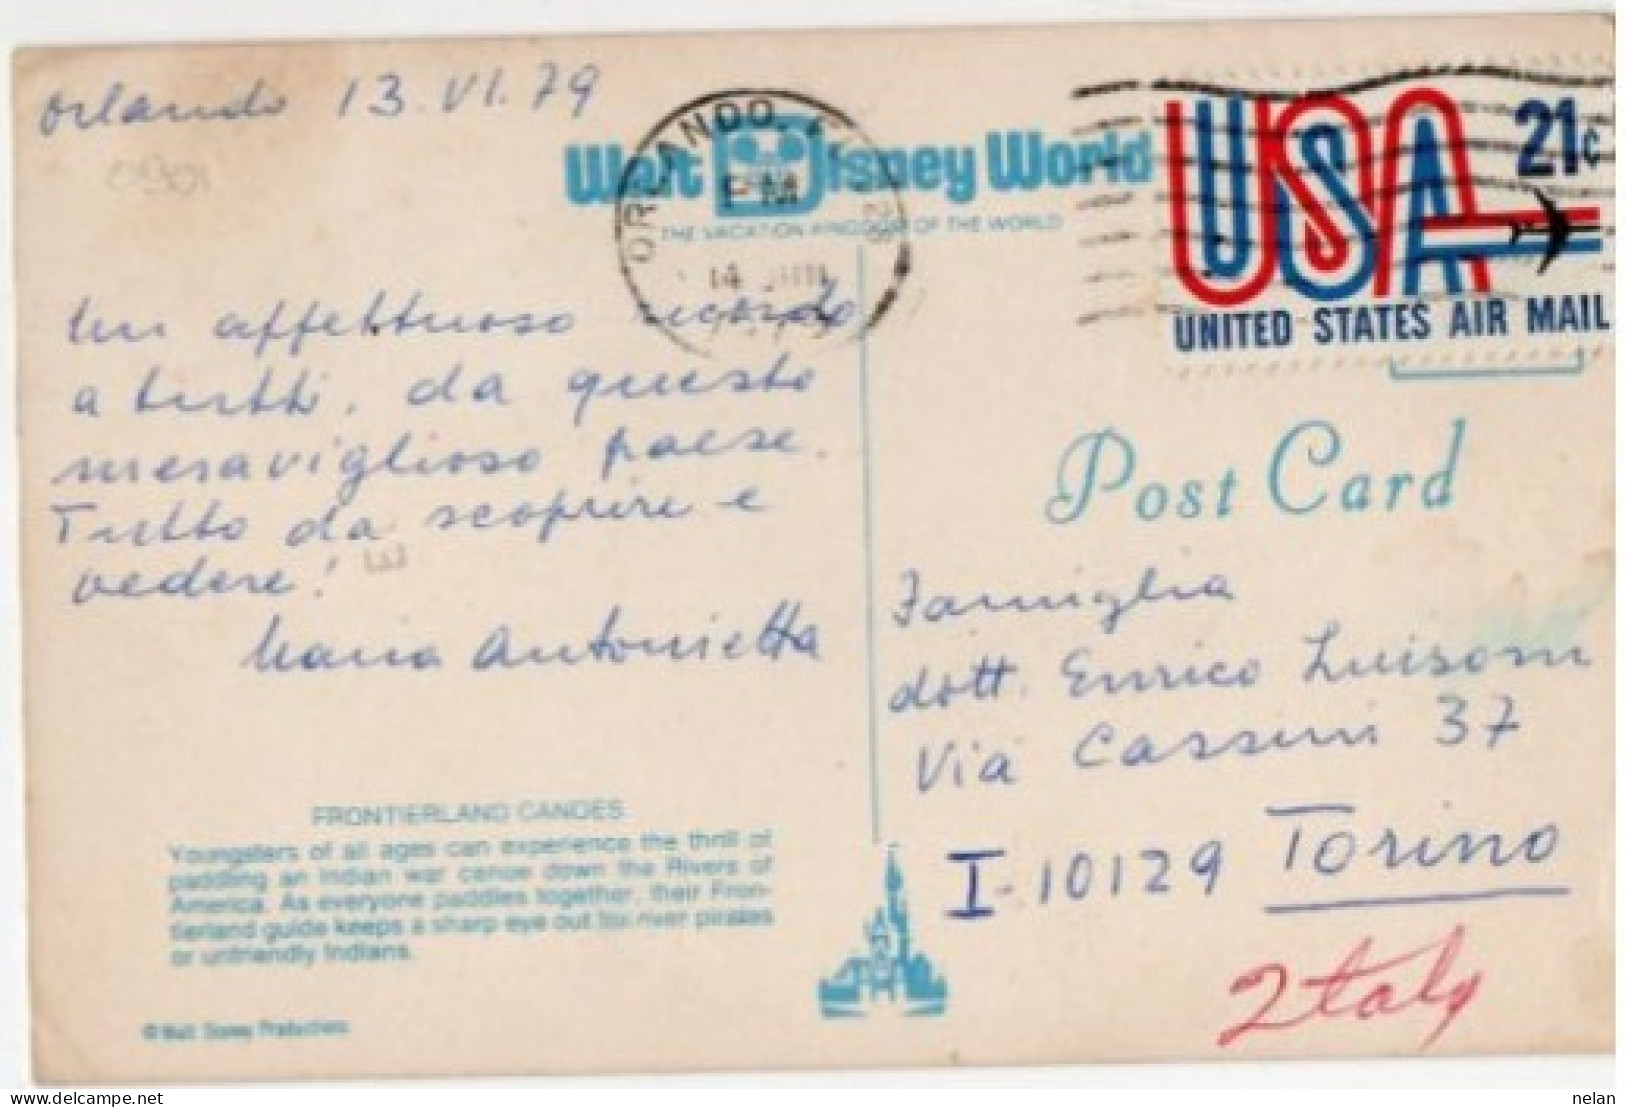 Orlando 13.VI.79
0901
Walt Disney World
THE VACATION KINGDOM OF THE WORLD
ORLANDO, FL 328
PM
14 JUN
USA 21¢
UNITED STATES AIR MAIL
Un affettuoso ricordo
a tutti, da questo
meraviglioso paese.
Tutto da scoprire e
vedere!
E
Maria Antonietta
Post Card
Famiglia
dott. Enrico Luisoni
Via Cassini 37
I-10129 Torino
Italy
FRONTIERLAND CANOES
Youngsters of all ages can experience the thrill of
paddling an Indian war canoe down the Rivers of
America. As everyone paddles together, their Fron-
tierland guide keeps a sharp eye out for river pirates
or unfriendly Indians.
© Walt Disney Productions
delcampe.net
nelan